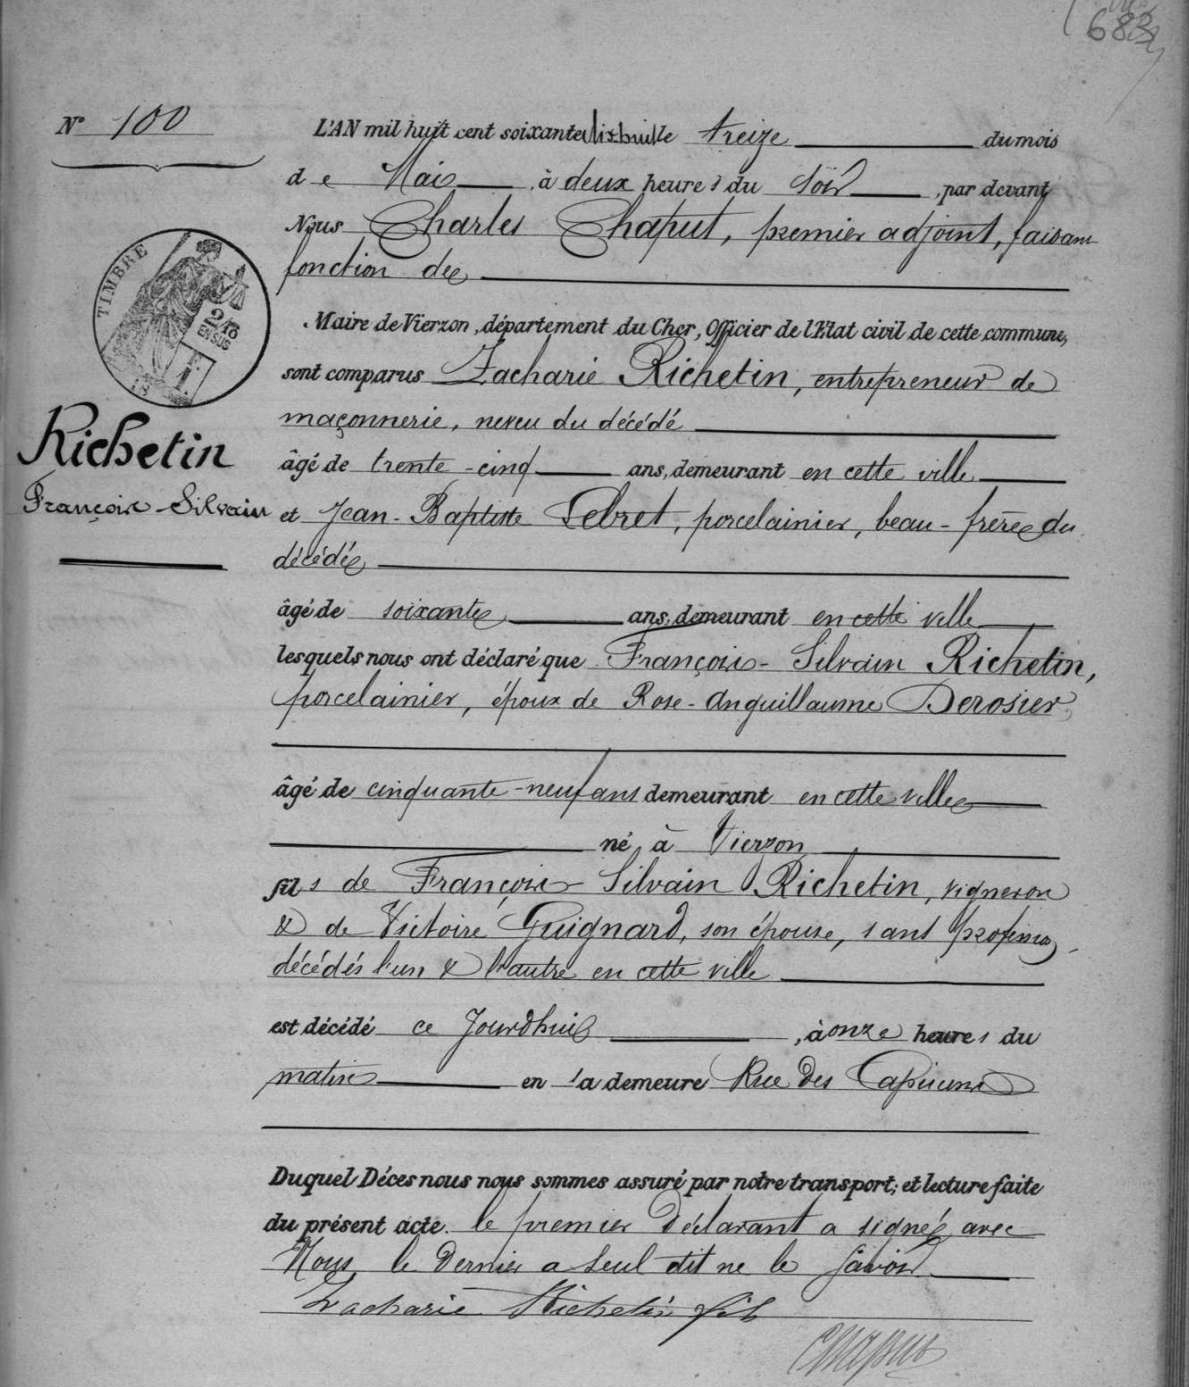 683
N° 100
L'AN mil huit cent soixante dix huit le treize du mois
de Mai à deux heures du soir par devant
Nous Charles Chaput, premier adjoint, faisant
fonction de
Maire de Vierzon, département du Cher, Officier de l'Etat civil de cette commune,
TIMBRE
2/10
EN SUS
sont comparus Zacharie Richetin, entrepreneur de
maçonnerie, neveu du décédé
Richetin
François-Silvain
âgé de trente-cinq ans, demeurant en cette ville
et Jean-Baptiste Lebret, porcelainier, beau-frère du
décédé
âgé de soixante ans, demeurant en cette ville
lesquels nous ont déclaré que François-Silvain Richetin,
porcelainier, époux de Rose-Anguillaume Derosier
âgé de cinquante-neuf ans demeurant en cette ville
né à Vierzon
fils de François-Silvain Richetin, vigneron
& de Victoire Guignard, son épouse, sans profession
décédés l'un & l'autre en cette ville
est décédé ce Jourdhui, à onze heures du
matin en sa demeure Rue des Capucins
Duquel Déces nous nous sommes assuré par notre transport; et lecture faite
du présent acte. le premier Déclarant a signé avec
Nous le Dernier a seul dit ne le savoir
Zacharie Richetin fils
Chaput